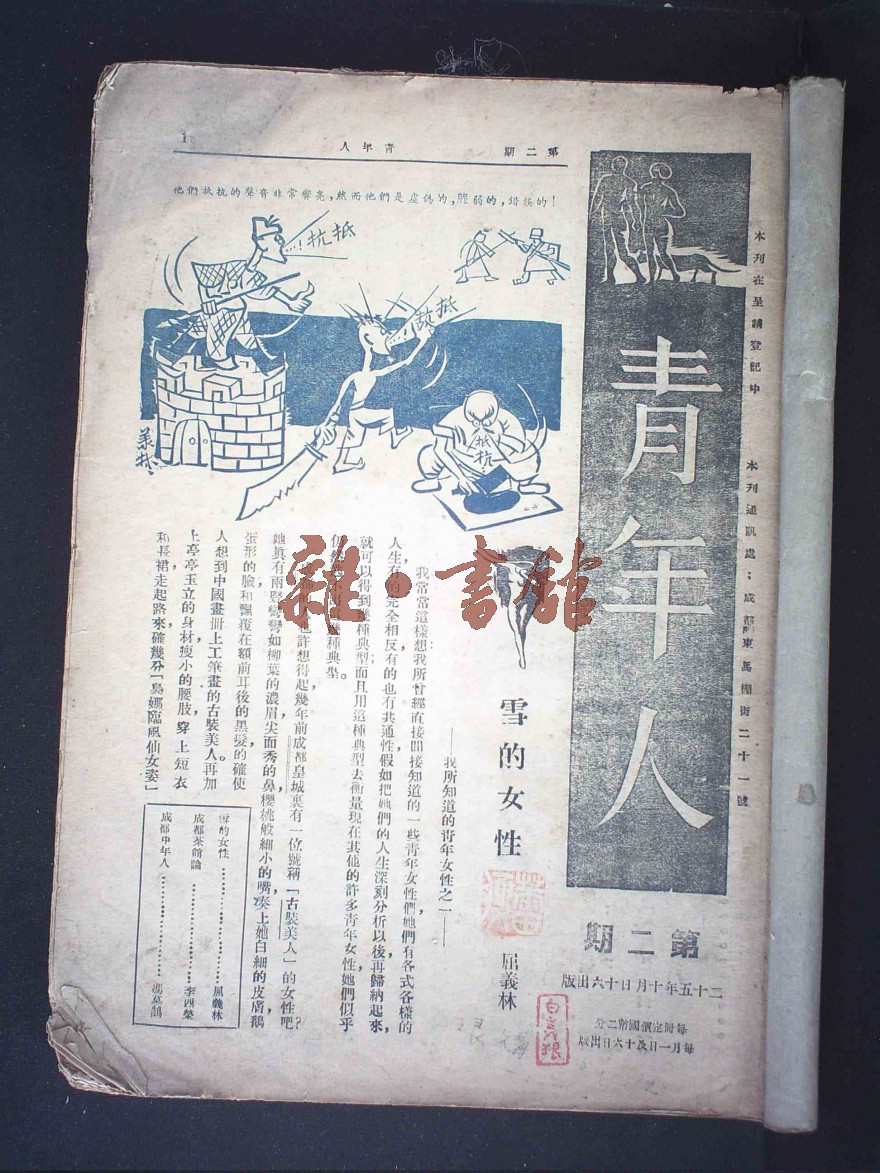 本刊在呈請登記中
本刊通訊處：成都東馬棚街二十一號
青年人
第二期
二十五年十月十六日出版
每期定價國幣二分
每月一日及十六日出版
第二期
青年人
1
他們抵抗的聲音非常響亮，然而他們是虛偽的，脆弱的，錯誤的！
抵抗
抵抗
抵抗
義林
雪的女性
——我所知道的青年女性之一——
屈義林
我常常這樣想：我所曾經直接間接知道的一些青年女性們，她們有各式各樣的
人生，有的完全相反，有的也有共通性，假如把她們的人生深刻分析以後，再歸納起來，
就可以得到幾種典型；而且用這種典型去衡量現在其他的許多青年女性，她們似乎
種典型。
也許想得起幾年前成都皇城裏有一位號稱「古裝美人」的女性吧？
她真有兩豎彎彎如柳葉的濃眉，尖而秀的鼻，櫻桃般細小的嘴，湊上她白細的皮膚，鵝
蛋形的臉和飄覆在額前耳後的黑髮，的確使
人想到中國畫冊上工筆畫的古裝美人。再加
上亭亭玉立的身材，瘦小的腰肢，穿上短衣
和長裙，走起路來確幾分「裊娜臨風仙女姿」
雪的女性………屈義林
成都茶館論………李四榮
成都中年人………馮莫鵠
雜·書館